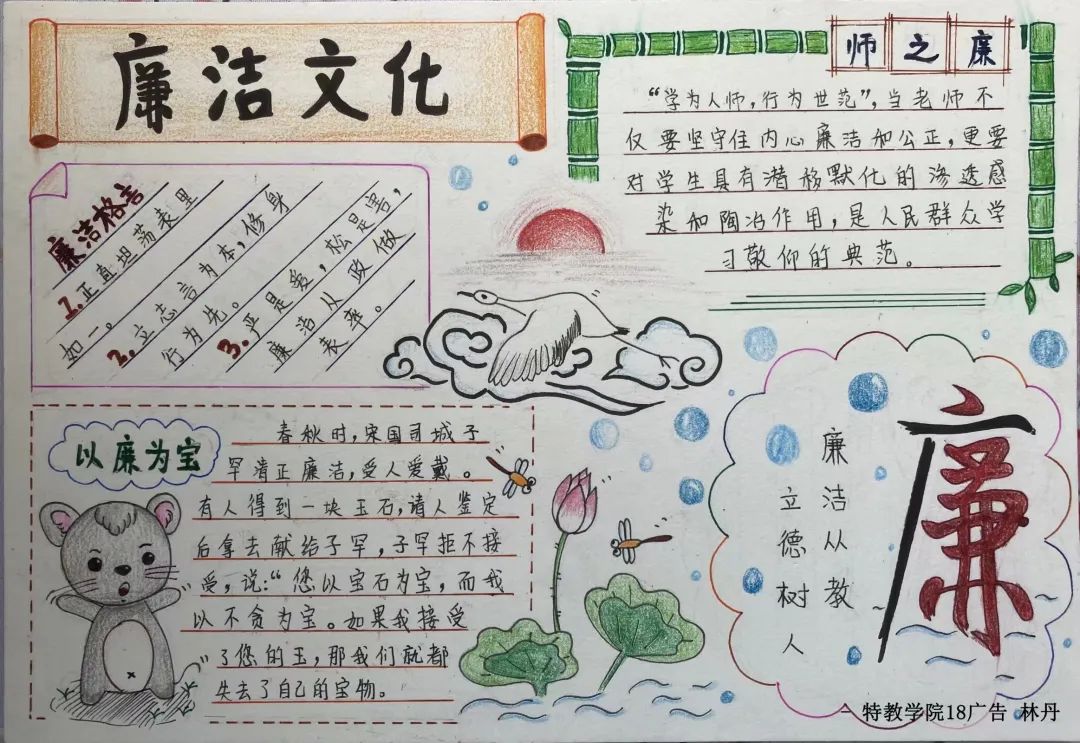 廉洁文化
师之廉
“学为人师，行为世范”，当老师不
仅要坚守住内心廉洁和公正，更要
对学生具有潜移默化的渗透感
染和陶冶作用，是人民群众学
习敬仰的典范。
廉洁格言
1.正直坦荡表里
如一。
2.立志言为本，修身
行为先。
3.严是爱，松是害，
廉洁从政做
表率。
以廉为宝
春秋时，宋国司城子
罕清正廉洁，受人爱戴。
有人得到一块玉石，请人鉴定
后拿去献给子罕，子罕拒不接
受，说：“您以宝石为宝，而我
以不贪为宝。如果我接受
了您的玉，那我们就都
失去了自己的宝物。
廉
廉洁从教
立德树人
特教学院18广告 林丹